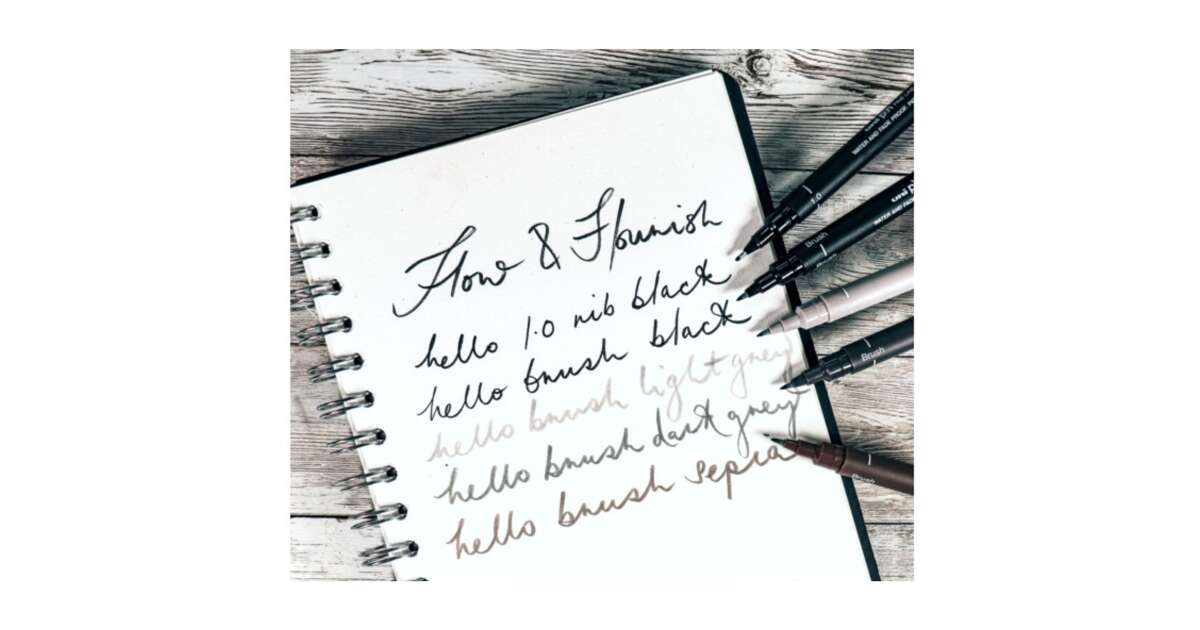 Flow & Flourish
hello 1.0 nib black
hello brush black
hello brush light grey
hello brush dark grey
hello brush sepia
uni pin
WATER AND FADE PROOF
1.0
uni
WATER AND FADE
Brush
Brush
Brush